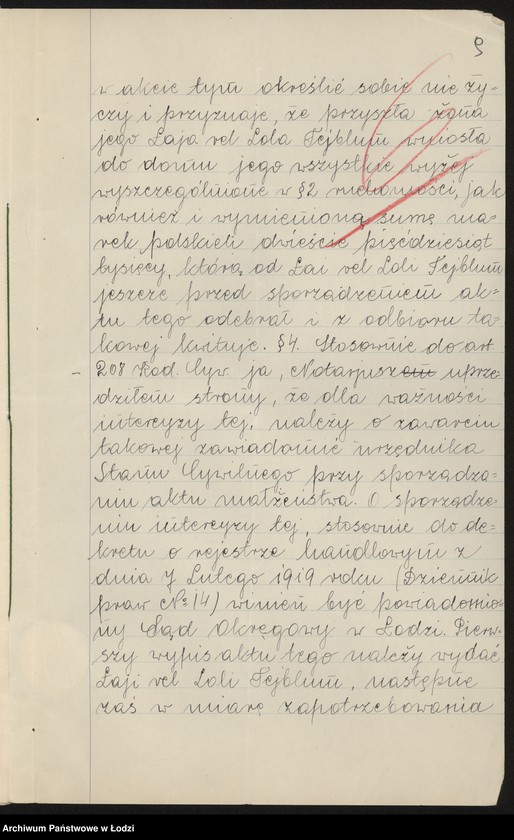 9
w akcie tym określić sobie nie ży-
czy i przyznaje, że przyszła żona
jego Łaja vel Lola Fejblum wniosła
do domu jego wszystkie wyżej
wyszczególnione w §2 ruchomości, jak
również i wymienioną sumę ma-
rek polskich dwieście pięćdziesiąt
tysięcy, którą od Łai vel Loli Fejblum
jeszcze przed sporządzeniem ak-
tu tego odebrał i z odbioru ta-
kowej kwituje. §4. Stosownie do art
208 Kod. Cyw. ja, Notarjusz uprze-
dziłem strony, że dla ważności
intercyzy tej, należy o zawarciu
takowej zawiadomić urzędnika
Stanu Cywilnego przy sporządza-
niu aktu małżeństwa. O sporządze-
niu intercyzy tej, stosownie do de-
kretu o rejestrze handlowym z
dnia 7 Lutego 1919 roku (Dziennik
praw № 14) winien być powiadomio-
ny Sąd Okręgowy w Łodzi. Pierw-
szy wypis aktu tego należy wydać
Łaji vel Loli Fejblum, następne
zaś w miarę zapotrzebowania
Archiwum Państwowe w Łodzi